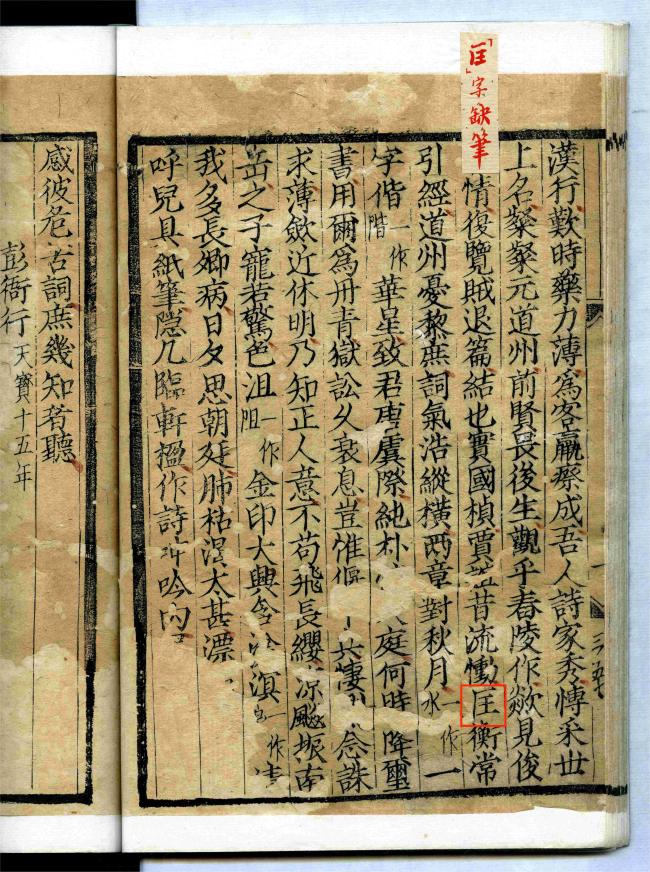 「匡」字缺筆
漢行歎時藥力薄為客羸瘵成吾人詩家秀博采世
上名粲粲元道州前賢畏後生觀乎舂陵作欻見俊
情復覽賊退篇結也實國楨賈誼昔流慟匡衡常
引經道州憂黎庶詞氣浩縱橫兩章對秋月一作水一
字偕一作階華星致君唐虞際純朴庭何時降璽
書用爾為丹青獄訟久衰息豈惟偃兵悽念誅
求薄斂近休明乃知正人意不苟飛長纓涼飆振南
岳之子寵若驚色沮一作阻金印大興含溟一作
我多長卿病日夕思朝廷肺枯渴太甚漂
呼兒具紙筆隱几臨軒楹作詩呻吟內
感彼危苦詞庶幾知者聽
彭衙行天寶十五年